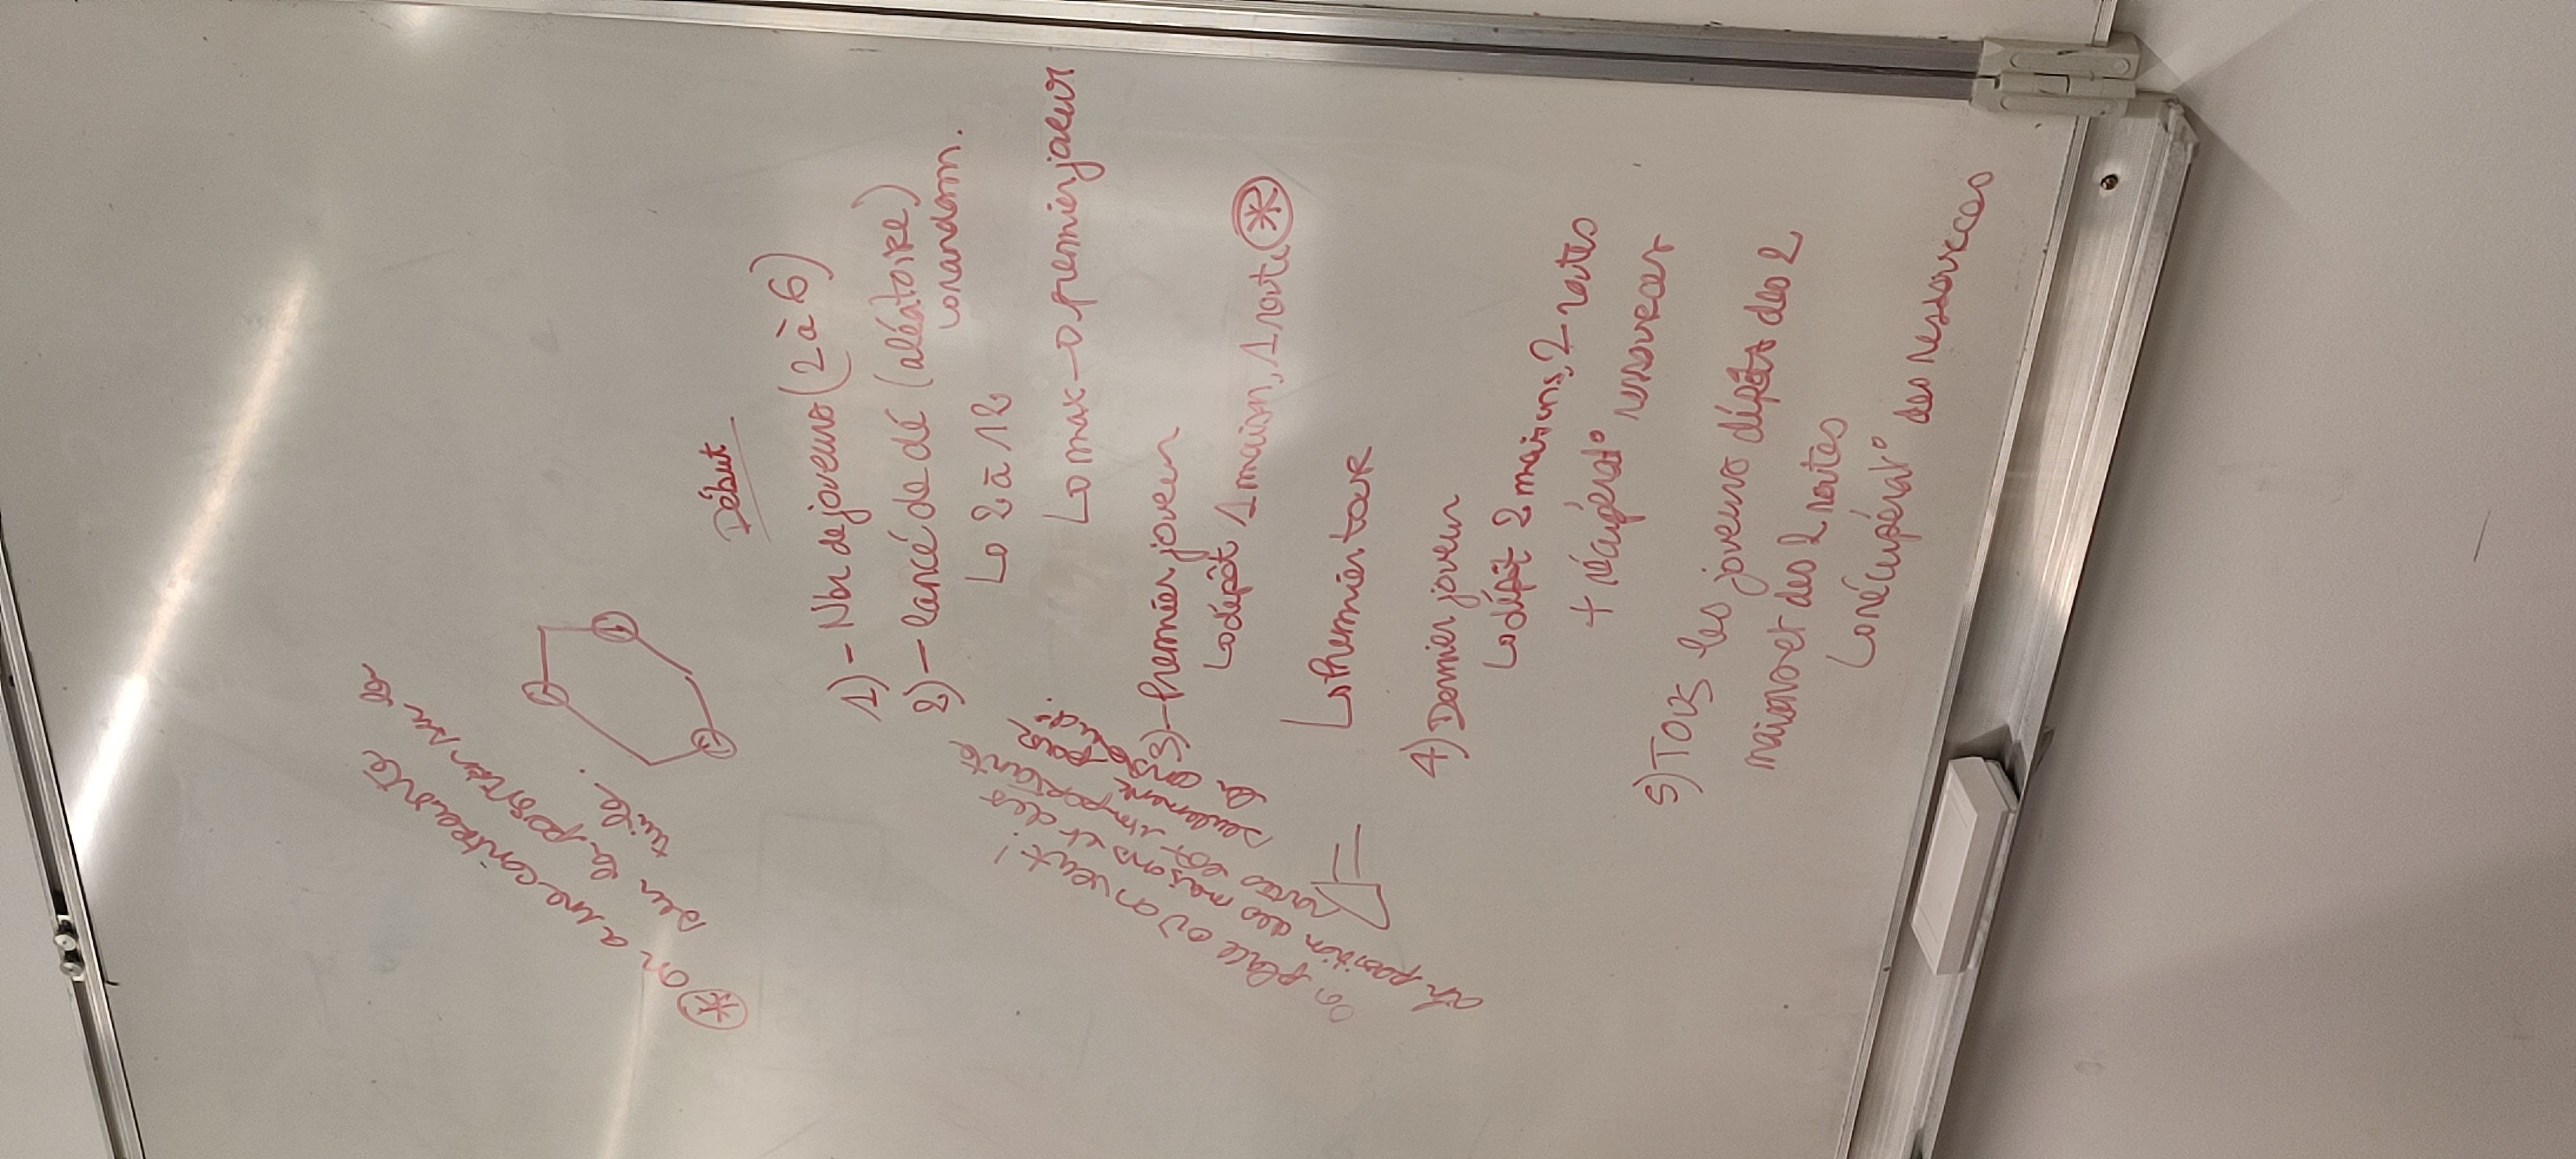 * on a une contrainte
sur la position su la
tuile.
Début
1) - Nbr de joueurs (2 à 6)
2) - lancé de dé (aléatoire)
↳ random.
↳ 2 à 12
↳ max → premier joueur
3) - Premier joueur
↳ dépôt 1 maison, 1 route *
↳ Premier tour
4) Dernier joueur
↳ dépôt 2 maisons, 2 routes
+ récupérat° ressources
5) TOUS les joueurs dépôts des 2
maisons et des 2 routes
↳ récupérat° des ressources
On place où on veut !
position des maisons et des
routes est importante
seulement pour
la construct°.